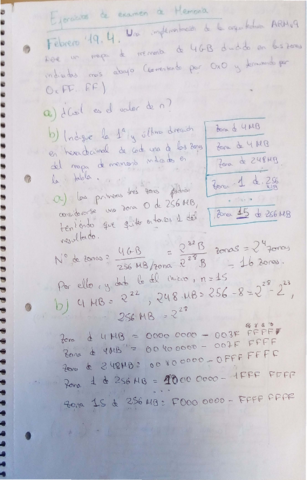 Ejercicios de examen de Memoria
Febrero 19. 4. Una implementación de la arquitectura ARMv4
tiene un mapa de memoria de 4GB dividido en las zonas
indicadas más abajo (comenzando por 0x0 y terminando por
0xFF FF)
a) ¿Cuál es el valor de n?
b) Indique la 1ª y última dirección
en hexadecimal de cada una de las zonas
del mapa de memoria indicadas en
la tabla.
Zona de 4MB
Zona de 4MB
Zona de 248MB
Zona 1 de 256
Zona 15 de 256MB
a) Las primeras tres zonas
una zona 0 de 256MB,
resultado.
Nº de zonas = 4GB / 256 MB/zona = 2^32 B / 2^28 B zonas = 2^4 zonas
= 16 zonas.
Por ello, y dado el inicio, n = 15
b) 4 MB = 2^22, 248 MB = 256 - 8 = 2^28 - 2^23
256 MB = 2^28
Zona de 4MB = 0000 0000 - 003F FFFF
Zona de 4MB: 0040 0000 - 007F FFFF
Zona de 248MB: 0080 0000 - 0FFF FFFF
Zona 1 de 256MB = 1000 0000 - 1FFF FFFF
...
Zona 15 de 256 MB: F000 0000 - FFFF FFFF